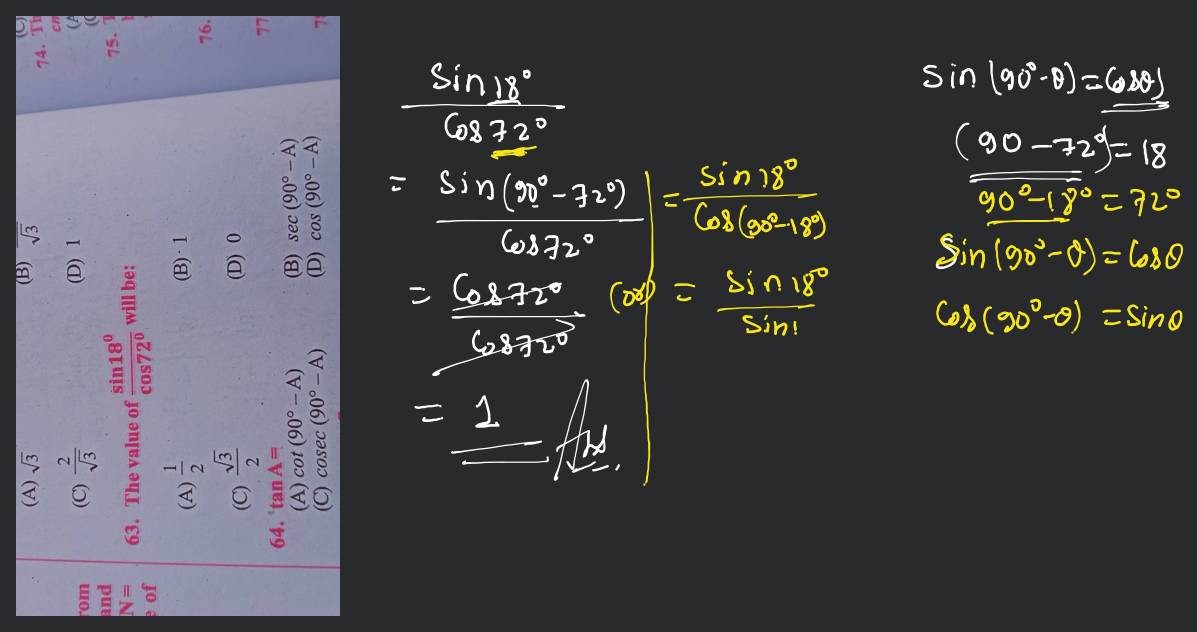 (A) √3
(B) /√3
(C) 2/√3
(D) 1
63. The value of sin18⁰/cos72⁰ will be:
(A) 1/2
(B) 1
(C) √3/2
(D) 0
64. tan A =
(A) cot (90° – A)
(B) sec (90° – A)
(C) cosec (90° – A)
(D) cos (90° – A)
rom
and
N =
e of
74. Th
cm
75. T
76.
77
Sin 18° / Cos 72°
= Sin (90° - 72°) / Cos 72°
= Cos 72° / Cos 72°
= 1 Ans.
= Sin 18° / Cos (90°-18°)
(or) = Sin 18° / Sin 1
Sin (90° - θ) = Cosθ
(90 - 72°) = 18
90° - 18° = 72°
Sin (90° - θ) = Cos θ
Cos (90° - θ) = Sin θ